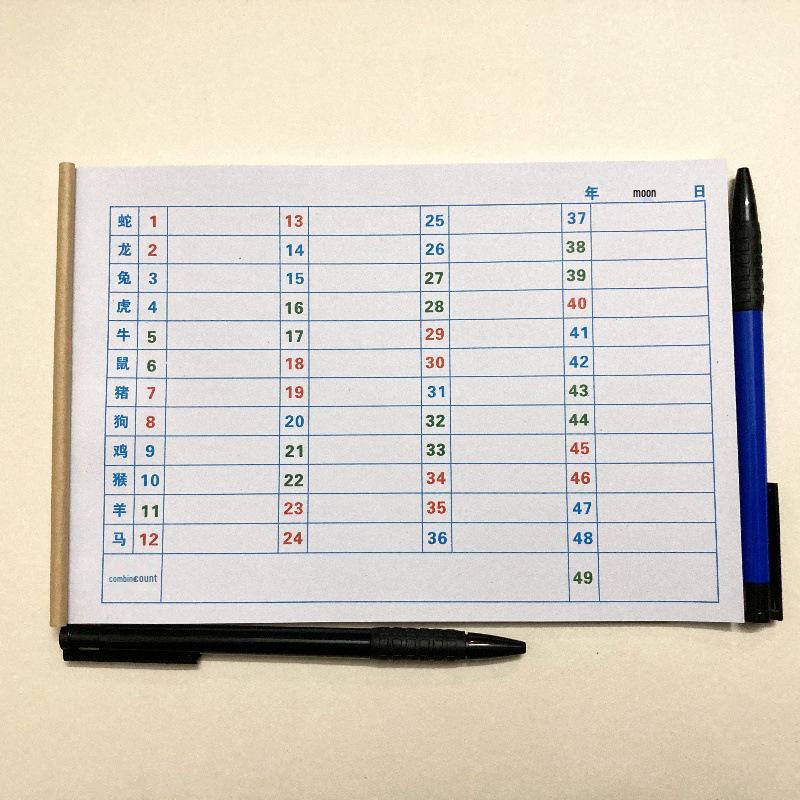 年 moon 日
蛇 1 13 25 37
龙 2 14 26 38
兔 3 15 27 39
虎 4 16 28 40
牛 5 17 29 41
鼠 6 18 30 42
猪 7 19 31 43
狗 8 20 32 44
鸡 9 21 33 45
猴 10 22 34 46
羊 11 23 35 47
马 12 24 36 48
combincount 49